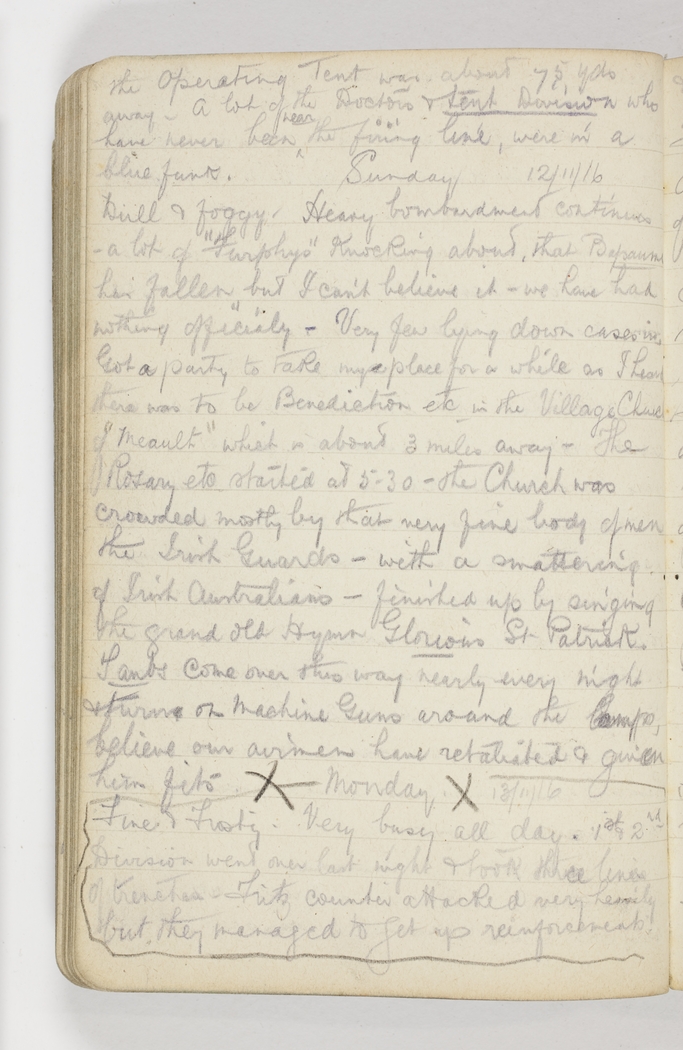 the Operating Tent was about 75 yds
away - A lot of the Doctors & Tent Division who
have never been near the firing line, were in a
blue funk. Sunday 12/11/16
Dull & foggy. Heavy bombardment continues
- a lot of "Furphys" Knocking about, that Bapaume
has fallen but I can't believe it - we have had
nothing officialy - Very few lying down cases in
Got a party to take my place for a while as I hear
there was to be Benediction etc in the Village Church
of "Meault" which is about 3 miles away - The
Rosary etc started at 5-30 - the Church was
crowded mostly by that very fine body of men
the Irish Guards - with a smattering
of Irish Australians - finished up by singing
the grand old Hymn Glorious St Patrick.
Taubs come over this way nearly every night
& turns on Machine Guns around the Camps,
believe our airmen have retaliated & given
him fits X Monday X 13/11/16
Fine & Frosty. Very busy all day. 1st & 2nd
Division went over last night & took three lines
of trenches - Fritz counter attacked very heavily
but they managed to get up reinforcements.